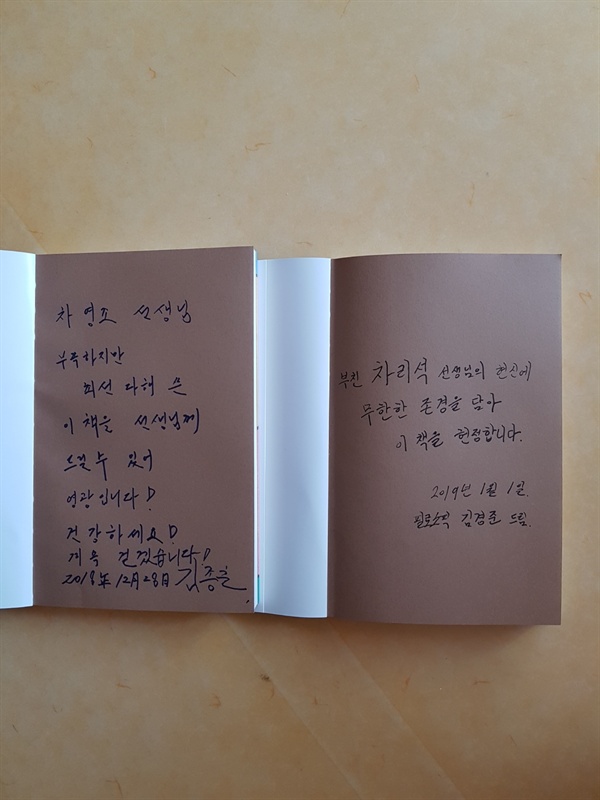 차영조 선생님
부족하지만
최선 다해 쓴
이 책을 선생님께
드릴 수 있어
영광입니다!
건강하세요!
계속 걷겠습니다!
2018年 12月 28日 김종훈
부친 차리석 선생님의 헌신에
무한한 존경을 담아
이 책을 헌정합니다.
2019년 1월 1일.
필로소픽 김경준 드림.